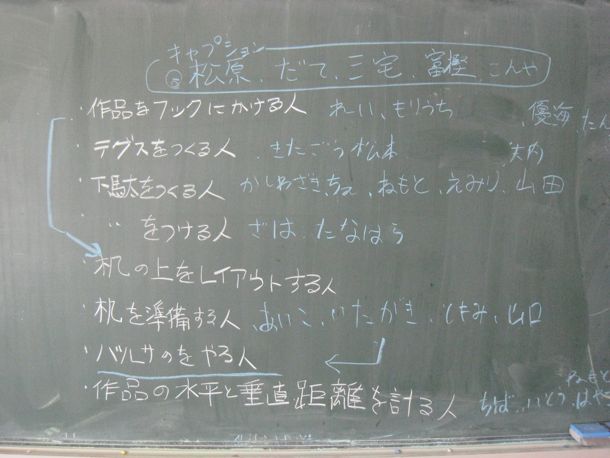 キャプション
松原、だて、三宅、富樫、こんや
・作品をフックにかける人 れーい、もりうち 、優海、たん
・テグスをつくる人 、きたごう 松本 大内
・下駄をつくる人 かしわざき、ちえ、ねもと、えみり、山田
・〃 をつける人 ざは、たなはら
・机の上をレイアウトする人
・机を準備する人 、あいこ、いたがき、ともみ、山口
・バルサのをやる人
・作品の水平と垂直距離を計る人 ちば、いとう、はや
ねもと